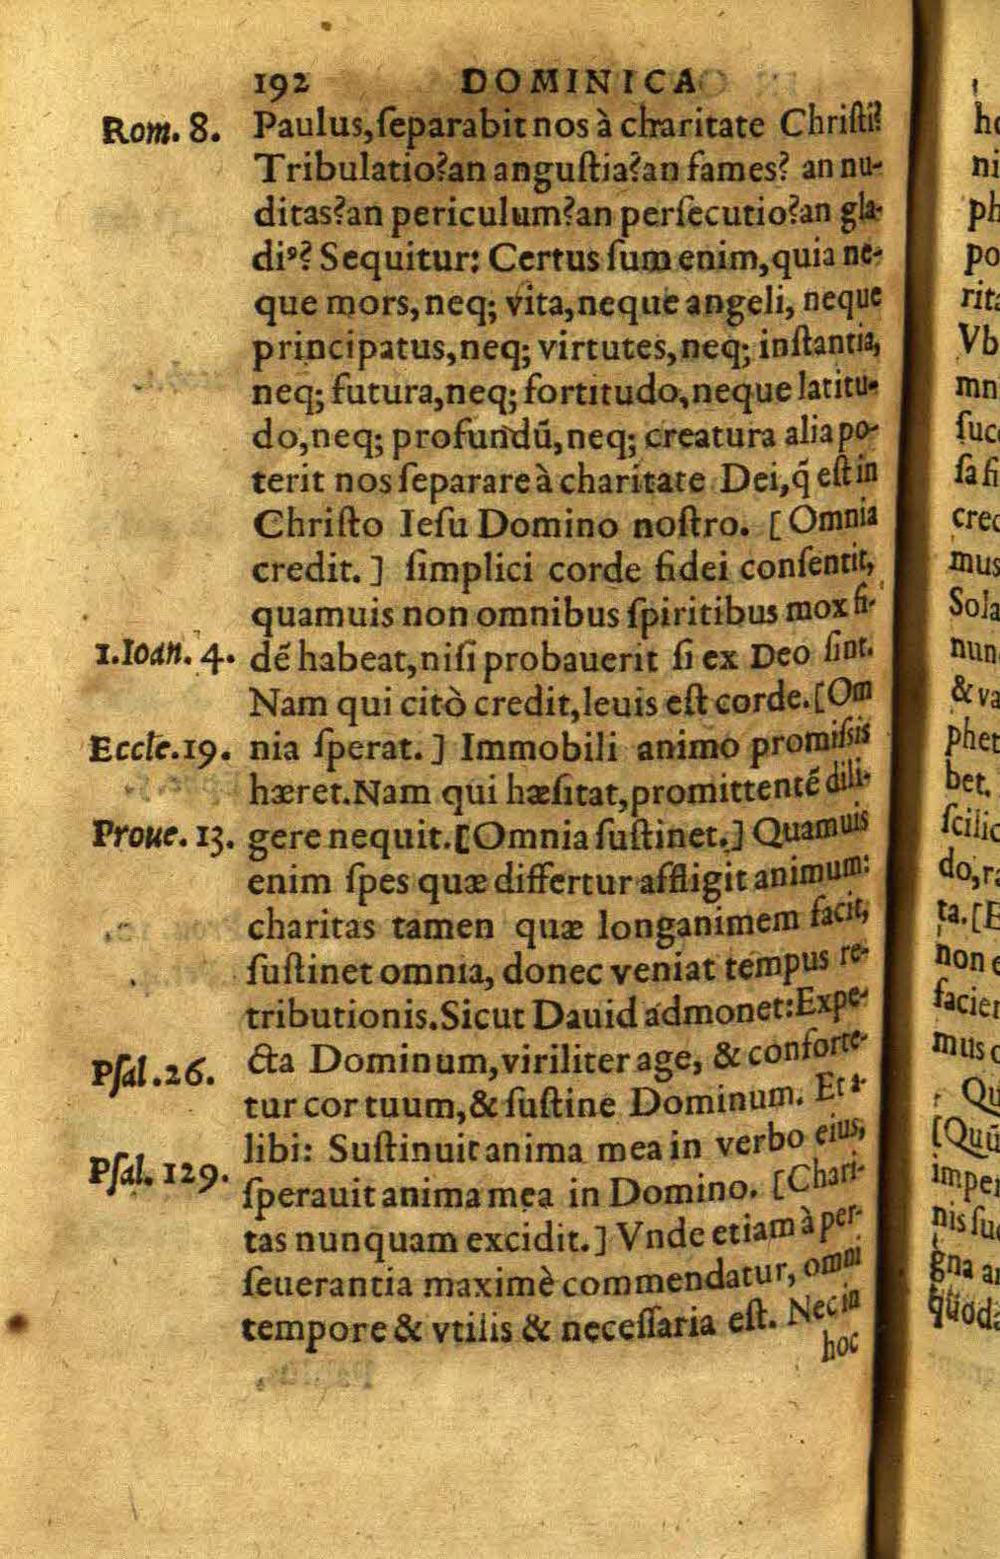 192 DOMINICA
Rom. 8. Paulus,ſeparabit nos à charitate Chriſti?
Tribulatio?an anguſtia?an fames? an nu-
ditas?an periculum?an perſecutio?an gla-
diꝰ? Sequitur: Certus ſum enim,quia ne-
que mors, neq; vita,neque angeli, neque
principatus,neq; virtutes,neq; inſtantia,
neq; futura,neq; fortitudo,neque latitu-
do,neq; profundū,neq; creatura alia po-
terit nos ſeparare à charitate Dei,q̄ eſt in
Chriſto Ieſu Domino noſtro. [Omnia
credit.] ſimplici corde fidei conſentit,
quamuis non omnibus ſpiritibus mox fi-
1.Ioan. 4. dē habeat,niſi probauerit ſi ex Deo ſint.
Nam qui citò credit,leuis eſt corde.[Om
Eccle.19. nia ſperat.] Immobili animo promiſsis
hæret.Nam qui hæſitat,promittentē dili-
Proue. 13. gere nequit.[Omnia ſuſtinet.] Quamuis
enim ſpes quæ differtur affligit animum:
charitas tamen quæ longanimem facit,
ſuſtinet omnia, donec veniat tempus re-
tributionis.Sicut Dauid admonet:Expe-
Pſal.26. cta Dominum,viriliter age, & conforte-
tur cor tuum,& ſuſtine Dominum. Et a-
libi: Suſtinuit anima mea in verbo eius,
Pſal. 129. ſperauit anima mea in Domino. [Chari-
tas nunquam excidit.] Vnde etiam à per-
ſeuerantia maximè commendatur, omni
tempore & vtilis & neceſſaria eſt. Nec in
hoc